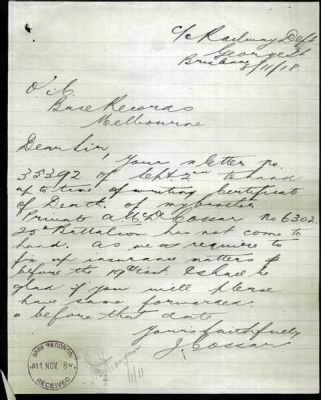 c/o Railway Dept
George St
Brisbane
8/11/18.
O i/c
Base Records
Melbourne.
Dear Sir,
Your letter no.
35392 of Sept 2nd to hand
up to time of writing Certificate
of Death of my brother
Private A. Cossar No 6302
25th Battalion has not come to
hand. As we require to
fix up insurance matters
before the 19th inst I shall be
glad if you will please
have same forwarded
before that date
Yours faithfully
J. Cossar
BASE RECORDS
11 NOV
RECEIVED
11/11